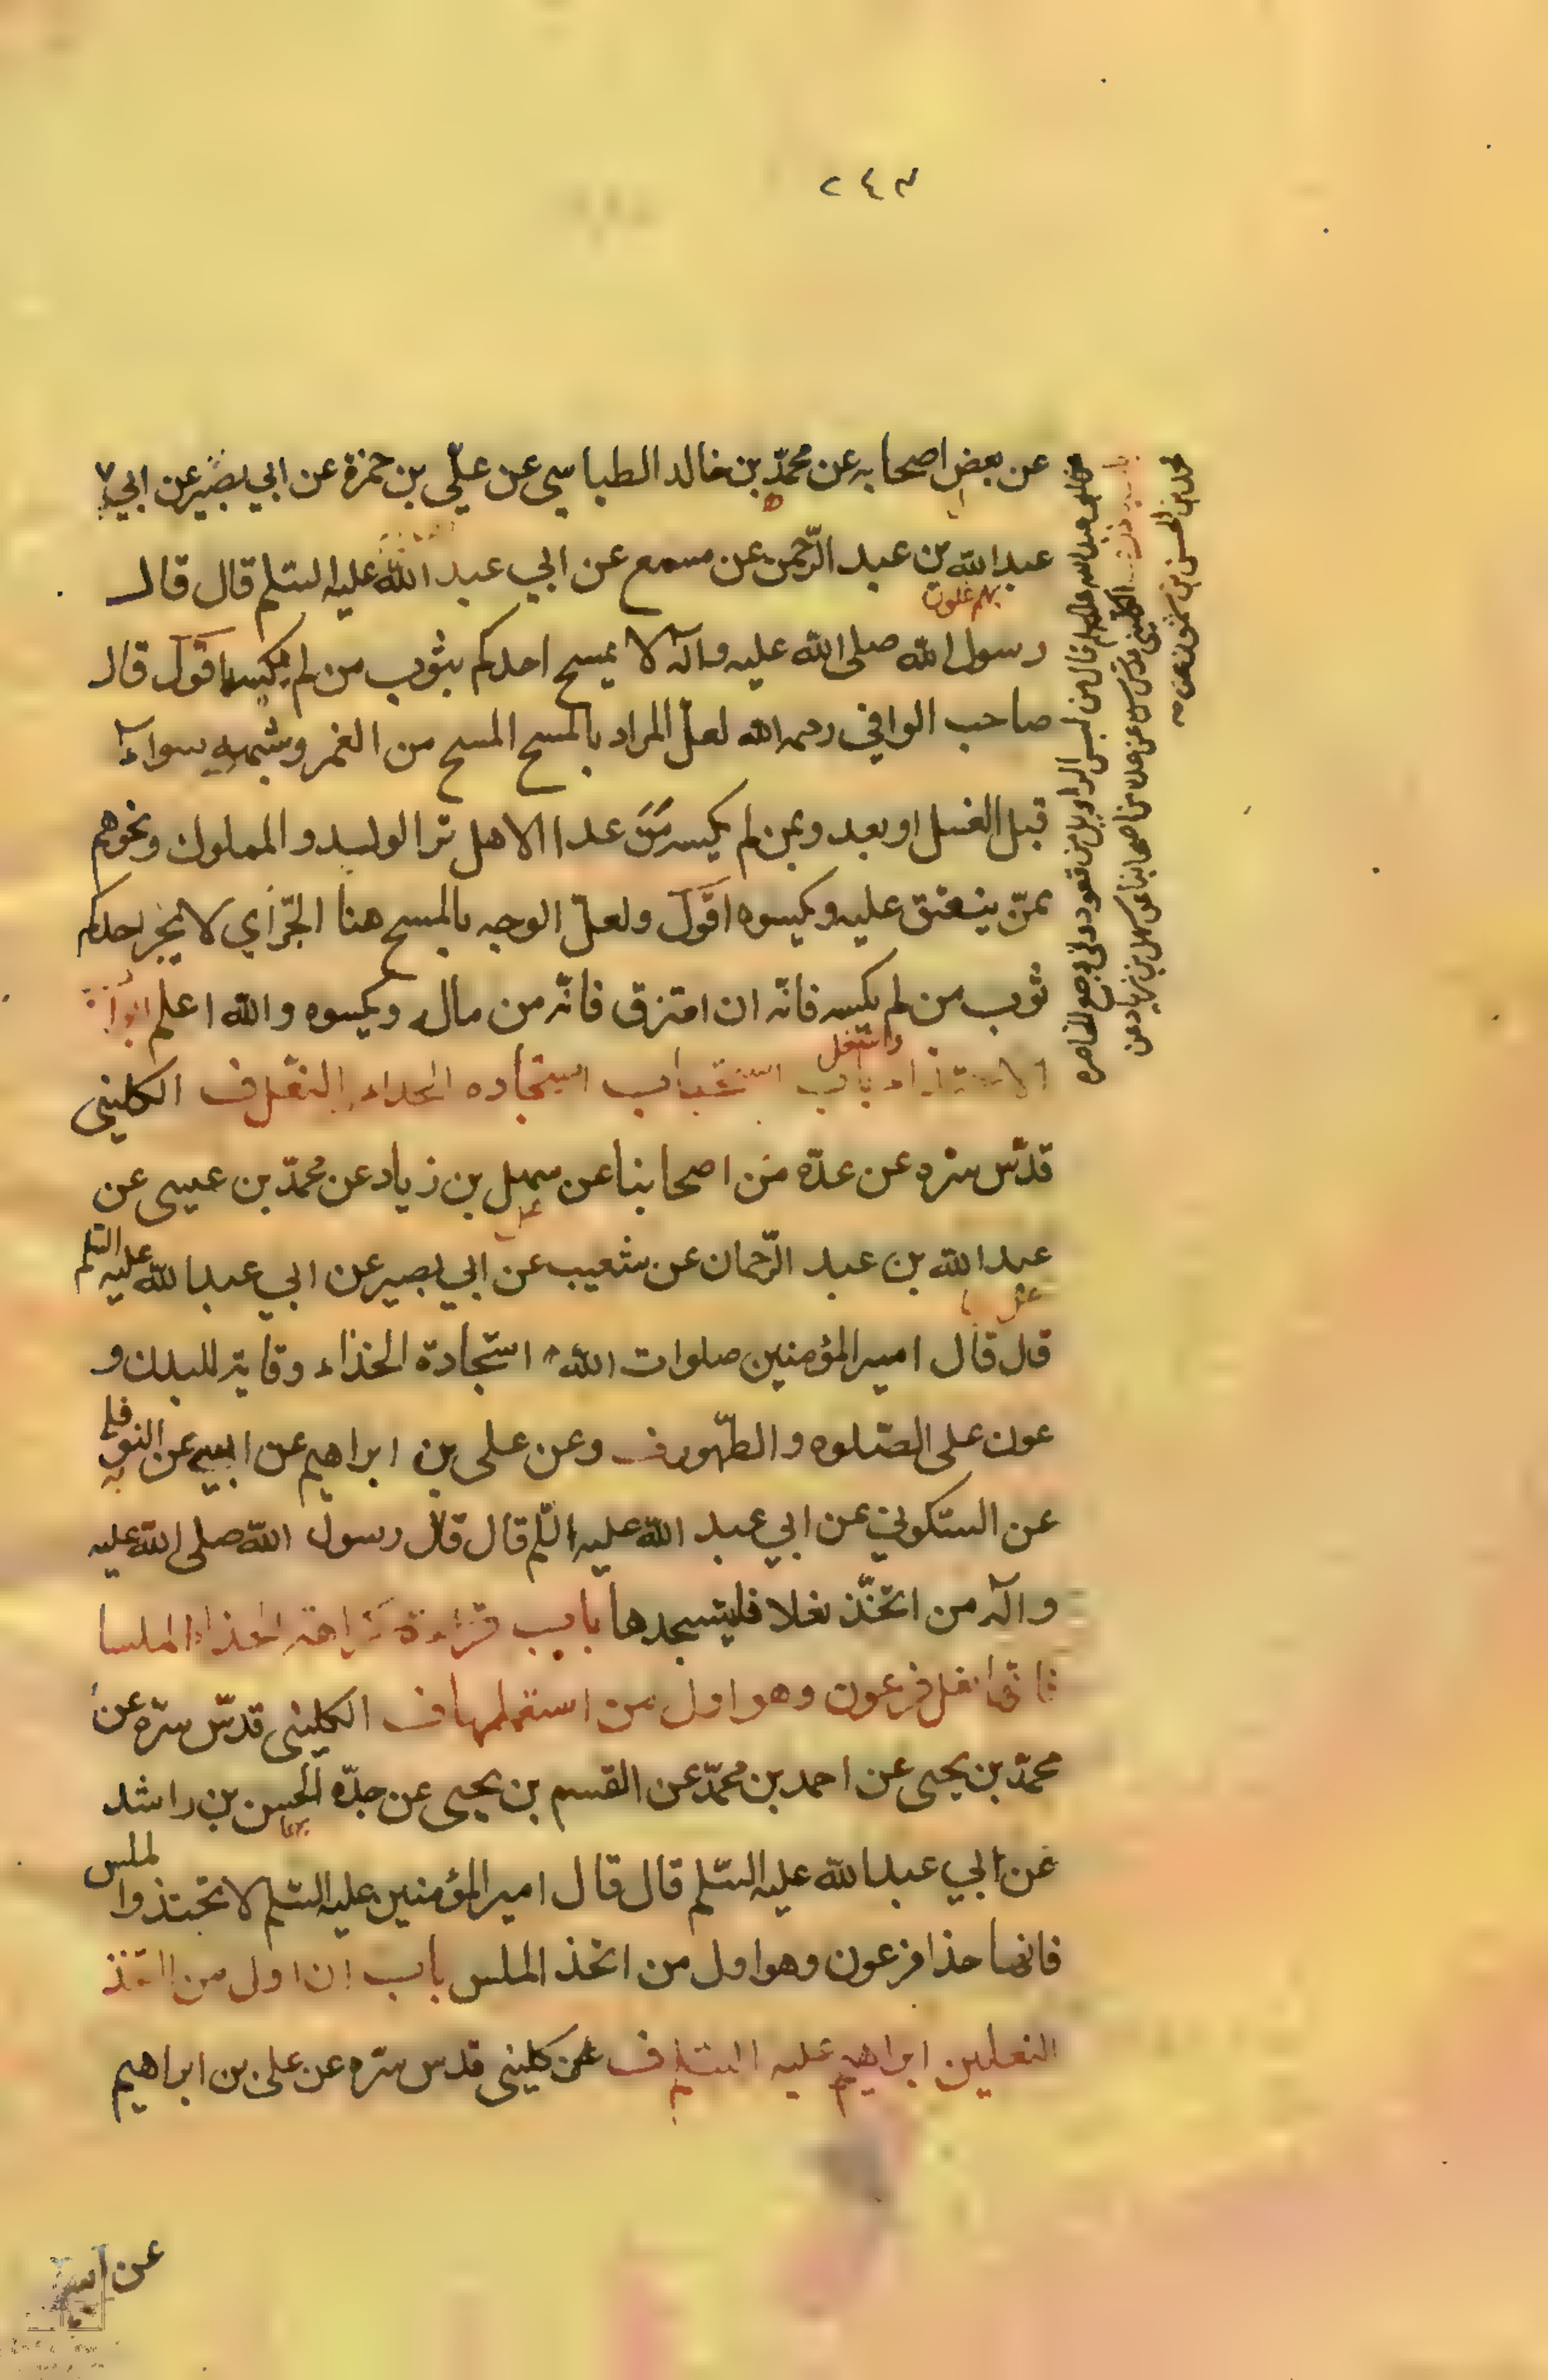 ٢٤٣
عن بعض اصحابه عن محمّد بن خالد الطيالسي عن علّي بن حمزة عن ابي بصير عن ابي
عبد الله بن عبد الرّحمن عن مسمع عن ابي عبد الله عليه السّلم قال قال
رسول الله صلى الله عليه وآله لا يمسح احدكم بثوب من لم يكسه اقول قال
صاحب الوافي رحمه الله لعلّ المراد بالمسح المسح من الغمر وشبهه سواء
قبل الغسل او بعد وبمن لم يكسه من عدا الاهل والوليد والمملوك ونحوهم
ممّن ينفق عليه ويكسوه اقول ولعلّ الوجه بالمسح هنا الجّر اي لا يجر احدكم
ثوب من لم يكسه فانّه ان امتزق فانّه من ماله ويكسوه والله اعلم ابواب
الاحتذاء باب استحباب استجاده الحذاء والتنعّل ف الكليني
قدّس سرّه عن عدّه من اصحابنا عن سهل بن زياد عن محمّد بن عيسى عن
عبد الله بن عبد الرّحمان عن شعيب عن ابي بصير عن ابي عبد الله عليه السّلم
قال قال امير المؤمنين صلوات الله استجادة الحذاء وقاية للبدن و
عون على الصّلوه والطّهور ف وعن على بن ابراهيم عن ابيه عن النوفلي
عن السّكوني عن ابي عبد الله عليه السّلم قال قال رسول الله صلى الله عليه
وآله من اتّخذ نعلا فليستجدها باب كراهة الحذاء الملسا
فانّها نعل فرعون وهو اول من استعملها ف الكليني قدّس سرّه عن
محمّد بن يحيى عن احمد بن محمّد عن القسم بن يحيى عن جدّه الحسن بن راشد
عن ابي عبد الله عليه السّلم قال قال امير المؤمنين عليه السّلم لا تحتذوا الملس
فانها حذا فرعون وهو اول من اتخذ الملس باب ان اول من اتخذ
النعلين ابراهيم عليه السّلم ف كليني قدس سرّه عن على بن ابراهيم
عن ابيه